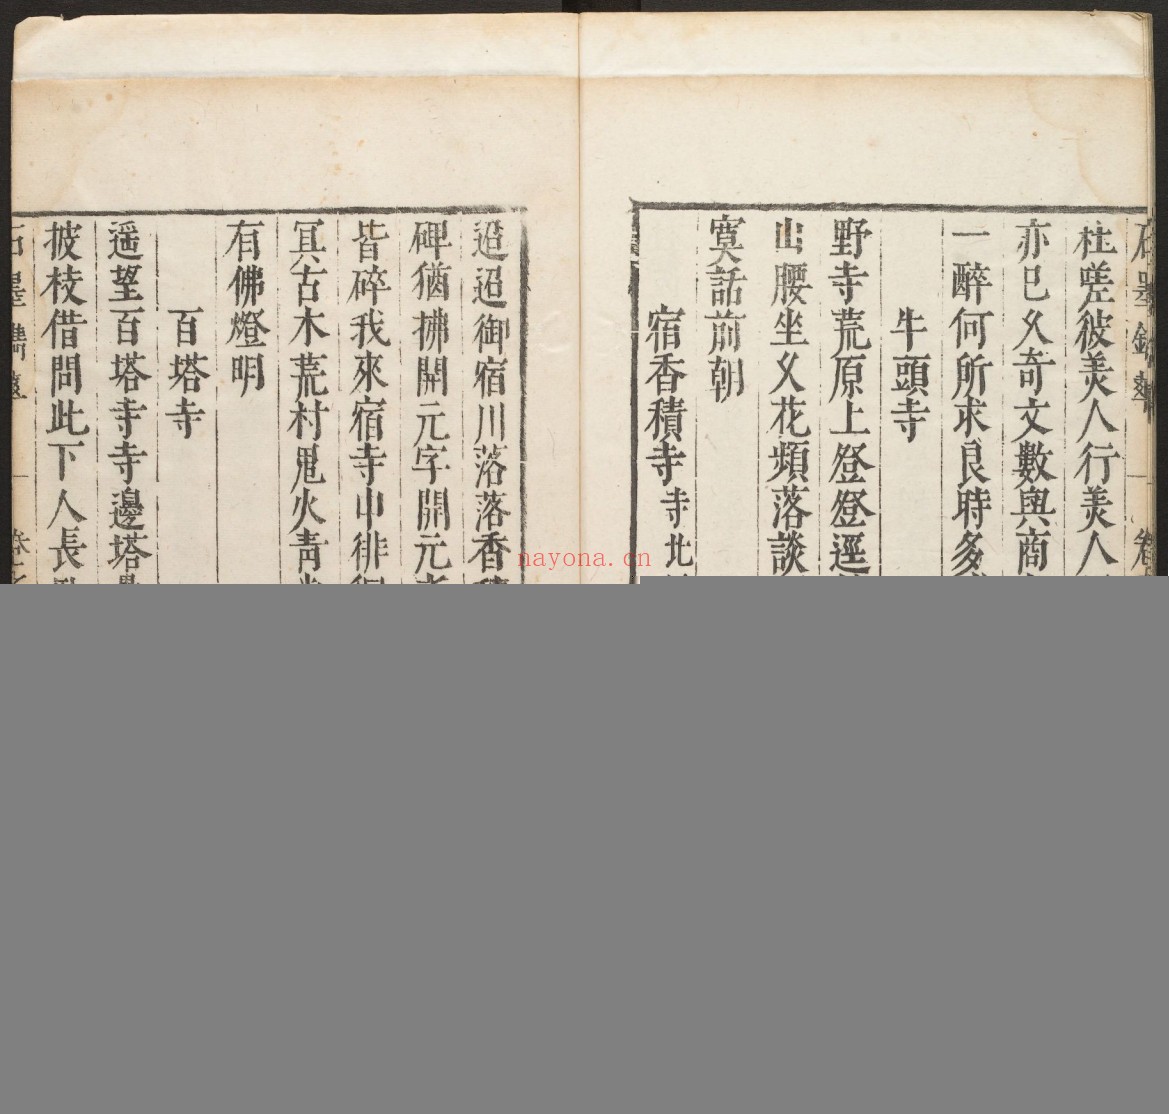 石墨鐫華 卷
杜嗟彼美人行美人
亦已久奇文數與商
一醉何所求良時多
牛頭寺
野寺荒原上登登逕
山腰坐久花頻落談
寞話前朝
宿香積寺寺北
迢迢御宿川落落香積
碑猶拂開元字開元
皆碎我來宿寺中徘徊
冥古木荒村鬼火青
有佛燈明
百塔寺
遥望百塔寺寺邊塔
披枝借問此下人長
石墨鐫華 卷
nayona.cn